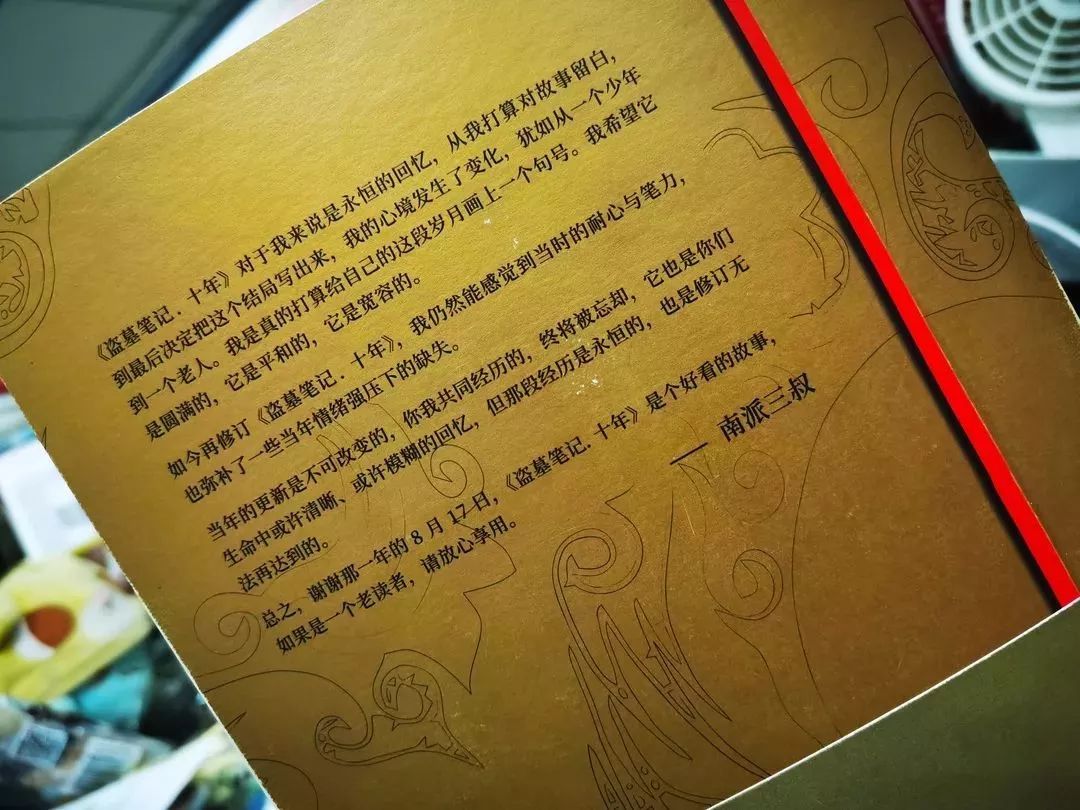 《盗墓笔记.十年》对于我来说是永恒的回忆，从我打算对故事留白，
到最后决定把这个结局写出来，我的心境发生了变化，犹如从一个少年
到一个老人。我是真的打算给自己的这段岁月画上一个句号。我希望它
是圆满的，它是平和的，它是宽容的。
如今再修订《盗墓笔记.十年》，我仍然能感觉到当时的耐心与笔力，
也弥补了一些当年情绪强压下的缺失。
当年的更新是不可改变的，你我共同经历的，终将被忘却，它也是你们
生命中或许清晰、或许模糊的回忆，但那段经历是永恒的，也是修订无
法再达到的。
总之，谢谢那一年的 8 月 17 日，《盗墓笔记.十年》是个好看的故事，
如果是一个老读者，请放心享用。
— 南派三叔